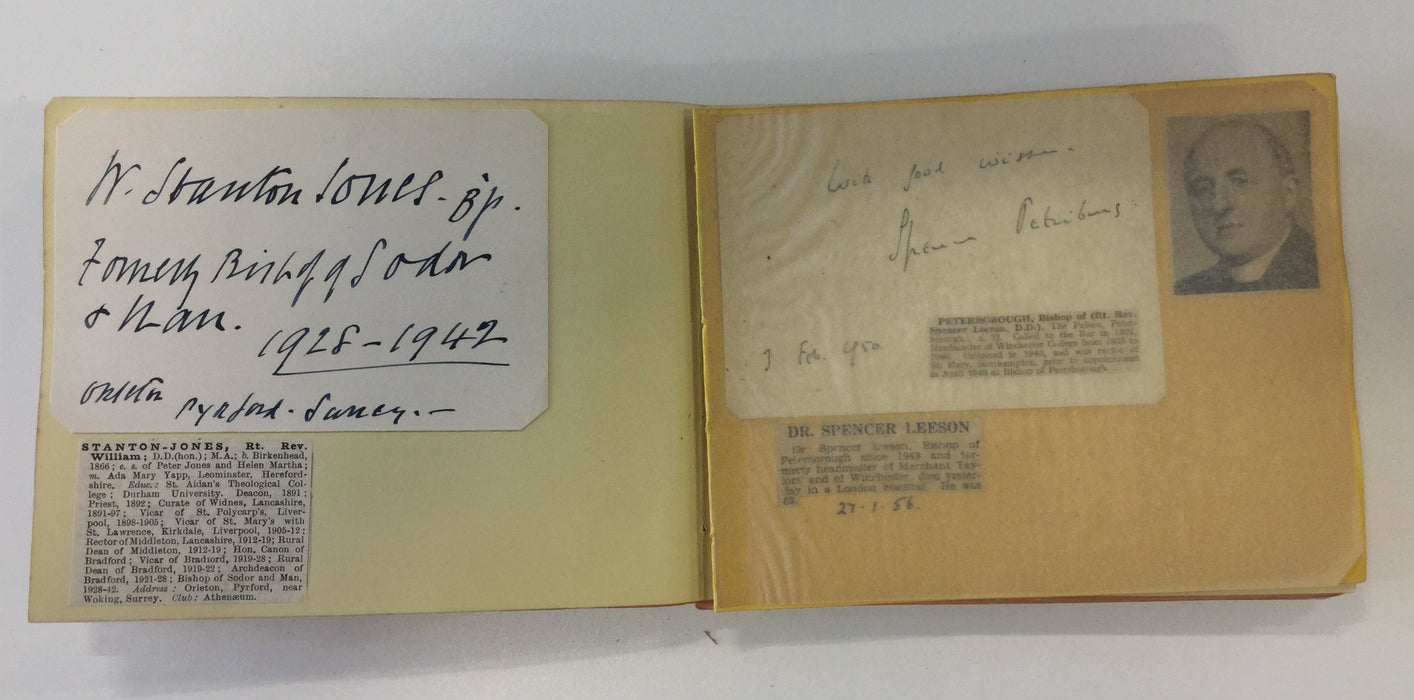 W. Stanton Jones. Bp.
Formerly Bishop of Sodor
& Man.
1928-1942
Orleton
Pyrford. Surrey.—
STANTON-JONES, Rt. Rev.
William; D.D.(hon.); M.A.; b. Birkenhead,
1866; e. s. of Peter Jones and Helen Martha;
m. Ada Mary Yapp, Leominster, Hereford-
shire. Educ.: St. Aidan's Theological Col-
lege; Durham University. Deacon, 1891;
Priest, 1892; Curate of Widnes, Lancashire,
1891-97; Vicar of St. Polycarp's, Liver-
pool, 1898-1905; Vicar of St. Mary's with
St. Lawrence, Kirkdale, Liverpool, 1905-12;
Rector of Middleton, Lancashire, 1912-19; Rural
Dean of Middleton, 1912-19; Hon. Canon of
Bradford; Vicar of Bradford, 1919-28; Rural
Dean of Bradford, 1919-22; Archdeacon of
Bradford, 1921-28; Bishop of Sodor and Man,
1928-42. Address: Orleton, Pyrford, near
Woking, Surrey. Club: Athenæum.
With good wishes.
Spencer Petriburg:
3 Feb. 1950
PETERBOROUGH, Bishop of (Rt. Rev.
Spencer Leeson, D.D.). The Palace, Peter-
borough. Called to the Bar in 1922,
Headmaster of Winchester College from 1935 to
1946. Ordained in 1940, and was rector of
St. Mary, Southampton, prior to appointment
in April 1949 as Bishop of Peterborough.
DR. SPENCER LEESON
Dr Spencer Leeson, Bishop of
Peterborough since 1949 and for-
merly headmaster of Merchant Tay-
lors' and of Winchester, died yester-
day in a London hospital. He was
63.
27.1.56.